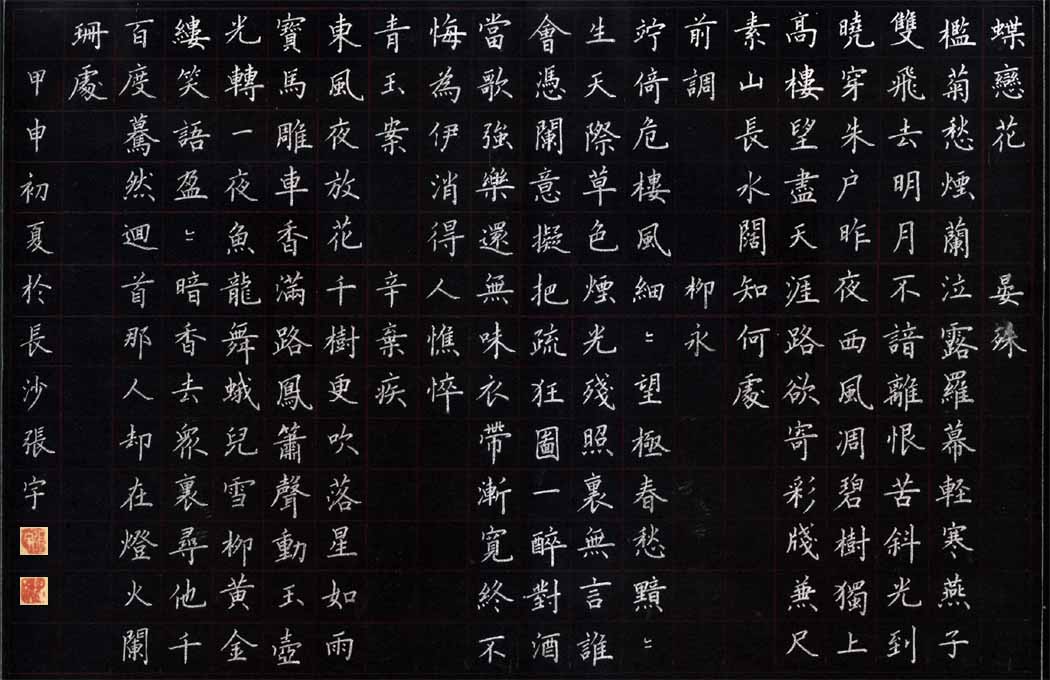 蝶戀花 晏殊
檻菊愁煙蘭泣露羅幕輕寒燕子
雙飛去明月不諳離恨苦斜光到
曉穿朱户昨夜西風凋碧樹獨上
高樓望盡天涯路欲寄彩牋兼尺
素山長水闊知何處
前調 柳永
竚倚危樓風細〻望極春愁黯〻
生天際草色煙光殘照裏無言誰
會憑闌意擬把疏狂圖一醉對酒
當歌強樂還無味衣帶漸寬終不
悔為伊消得人憔悴
青玉案 辛棄疾
東風夜放花千樹更吹落星如雨
寶馬雕車香滿路鳳簫聲動玉壺
光轉一夜魚龍舞蛾兒雪柳黃金
縷笑語盈〻暗香去眾裏尋他千
百度驀然迴首那人却在燈火闌
珊處
甲申初夏於長沙張宇